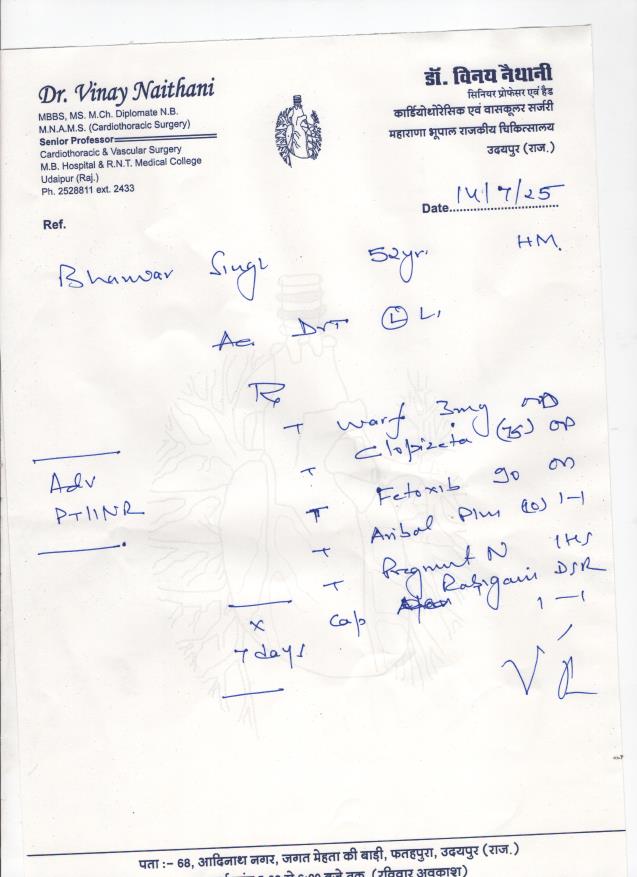 Dr. Vinay Naithani
MBBS, MS. M.Ch. Diplomate N.B.
M.N.A.M.S. (Cardiothoracic Surgery)
Senior Professor
Cardiothoracic & Vascular Surgery
M.B. Hospital & R.N.T. Medical College
Udaipur (Raj.)
Ph. 2528811 ext. 2433
डॉ. विनय नैथानी
सिनियर प्रोफेसर एवं हैड
कार्डियोथोरेसिक एवं वासकूलर सर्जरी
महाराणा भूपाल राजकीय चिकित्सालय
उदयपुर (राज.)
Date 14/7/25
Ref.
Bhanwar Singh 52yr. HM.
Ac DVT Ⓛ LL
Rx
T warf 3mg OD
T Clopizeta (75) OD
T Fetoxib 90 OD
T Plus (10) 1-1
T N 1HS
Cap DSR 1-1
Adv
PT/INR
x
7 days
पता :– 68, आदिनाथ नगर, जगत मेहता की बाड़ी, फतहपुरा, उदयपुर (राज.)
(रविवार अवकाश)